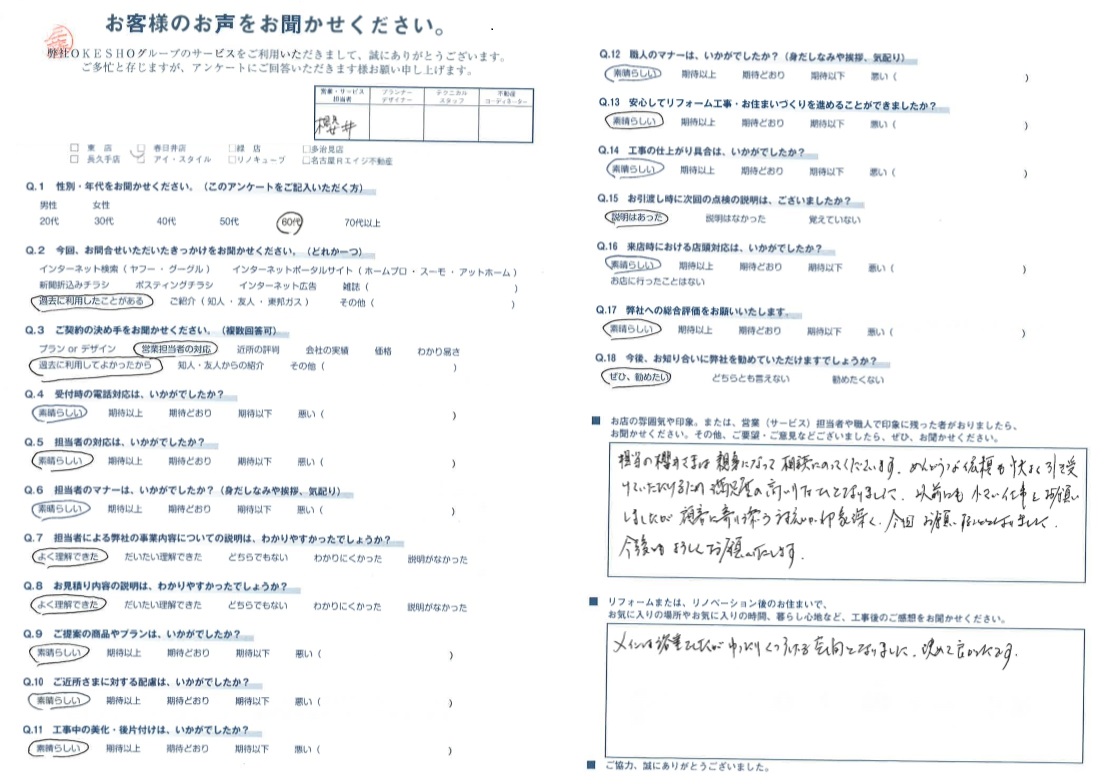 お客様のお声をお聞かせください。
弊社OKESHOグループのサービスをご利用いただきまして、誠にありがとうございます。
ご多忙と存じますが、アンケートにご回答いただきます様お願い申し上げます。
営業・サービス担当者 プランナーデザイナー テクニカルスタッフ 不動産コーディネーター
櫻井
□ 東 店 □ 春日井店 □緑 店 □多治見店
□ 長久手店 □ アイ・スタイル □リノキューブ □名古屋Rエイジ不動産
Q.1 性別・年代をお聞かせください。（このアンケートをご記入いただく方）
男性 女性
20代 30代 40代 50代 60代 70代以上
Q.2 今回、お問合せいただいたきっかけをお聞かせください。（どれか一つ）
インターネット検索（ ヤフー ・ グーグル ） インターネットポータルサイト（ ホームプロ ・ スーモ ・ アットホーム ）
新聞折込みチラシ ポスティングチラシ インターネット広告 雑誌（ ）
過去に利用したことがある ご紹介（ 知人 ・ 友人 ・ 東邦ガス ） その他（ ）
Q.3 ご契約の決め手をお聞かせください。（複数回答可）
プラン or デザイン 営業担当者の対応 近所の評判 会社の実績 価格 わかり易さ
過去に利用してよかったから 知人・友人からの紹介 その他（ ）
Q.4 受付時の電話対応は、いかがでしたか？
素晴らしい 期待以上 期待どおり 期待以下 悪い（ ）
Q.5 担当者の対応は、いかがでしたか？
素晴らしい 期待以上 期待どおり 期待以下 悪い（ ）
Q.6 担当者のマナーは、いかがでしたか？（身だしなみや挨拶、気配り）
素晴らしい 期待以上 期待どおり 期待以下 悪い（ ）
Q.7 担当者による弊社の事業内容についての説明は、わかりやすかったでしょうか？
よく理解できた だいたい理解できた どちらでもない わかりにくかった 説明がなかった
Q.8 お見積り内容の説明は、わかりやすかったでしょうか？
よく理解できた だいたい理解できた どちらでもない わかりにくかった 説明がなかった
Q.9 ご提案の商品やプランは、いかがでしたか？
素晴らしい 期待以上 期待どおり 期待以下 悪い（ ）
Q.10 ご近所さまに対する配慮は、いかがでしたか？
素晴らしい 期待以上 期待どおり 期待以下 悪い（ ）
Q.11 工事中の美化・後片付けは、いかがでしたか？
素晴らしい 期待以上 期待どおり 期待以下 悪い（ ）
Q.12 職人のマナーは、いかがでしたか？（身だしなみや挨拶、気配り）
素晴らしい 期待以上 期待どおり 期待以下 悪い（ ）
Q.13 安心してリフォーム工事・お住まいづくりを進めることができましたか？
素晴らしい 期待以上 期待どおり 期待以下 悪い（ ）
Q.14 工事の仕上がり具合は、いかがでしたか？
素晴らしい 期待以上 期待どおり 期待以下 悪い（ ）
Q.15 お引渡し時に次回の点検の説明は、ございましたか？
説明はあった 説明はなかった 覚えていない
Q.16 来店時における店頭対応は、いかがでしたか？
素晴らしい 期待以上 期待どおり 期待以下 悪い（ ）
お店に行ったことはない
Q.17 弊社への総合評価をお願いいたします。
素晴らしい 期待以上 期待どおり 期待以下 悪い（ ）
Q.18 今後、お知り合いに弊社を勧めていただけますでしょうか？
ぜひ、勧めたい どちらとも言えない 勧めたくない
■ お店の雰囲気や印象。または、営業（サービス）担当者や職人で印象に残った者がおりましたら、
お聞かせください。その他、ご要望・ご意見などございましたら、ぜひ、お聞かせください。
担当の櫻井さまは親身になって相談にのってくださいます。めんどうな依頼も快よく引き受
けていただけるため満足度の高いリフォームとなりました。以前にも小さい仕事をお願い
しましたが顧客に寄り添う 印象深く、今回お願い ました。
今後ともよろしくお願いします。
■ リフォームまたは、リノベーション後のお住まいで、
お気に入りの場所やお気に入りの時間、暮らし心地など、工事後のご感想をお聞かせください。
メインは浴室でしたがゆったりくつろげる空間となりました。決めて良かったです。
■ ご協力、誠にありがとうございました。